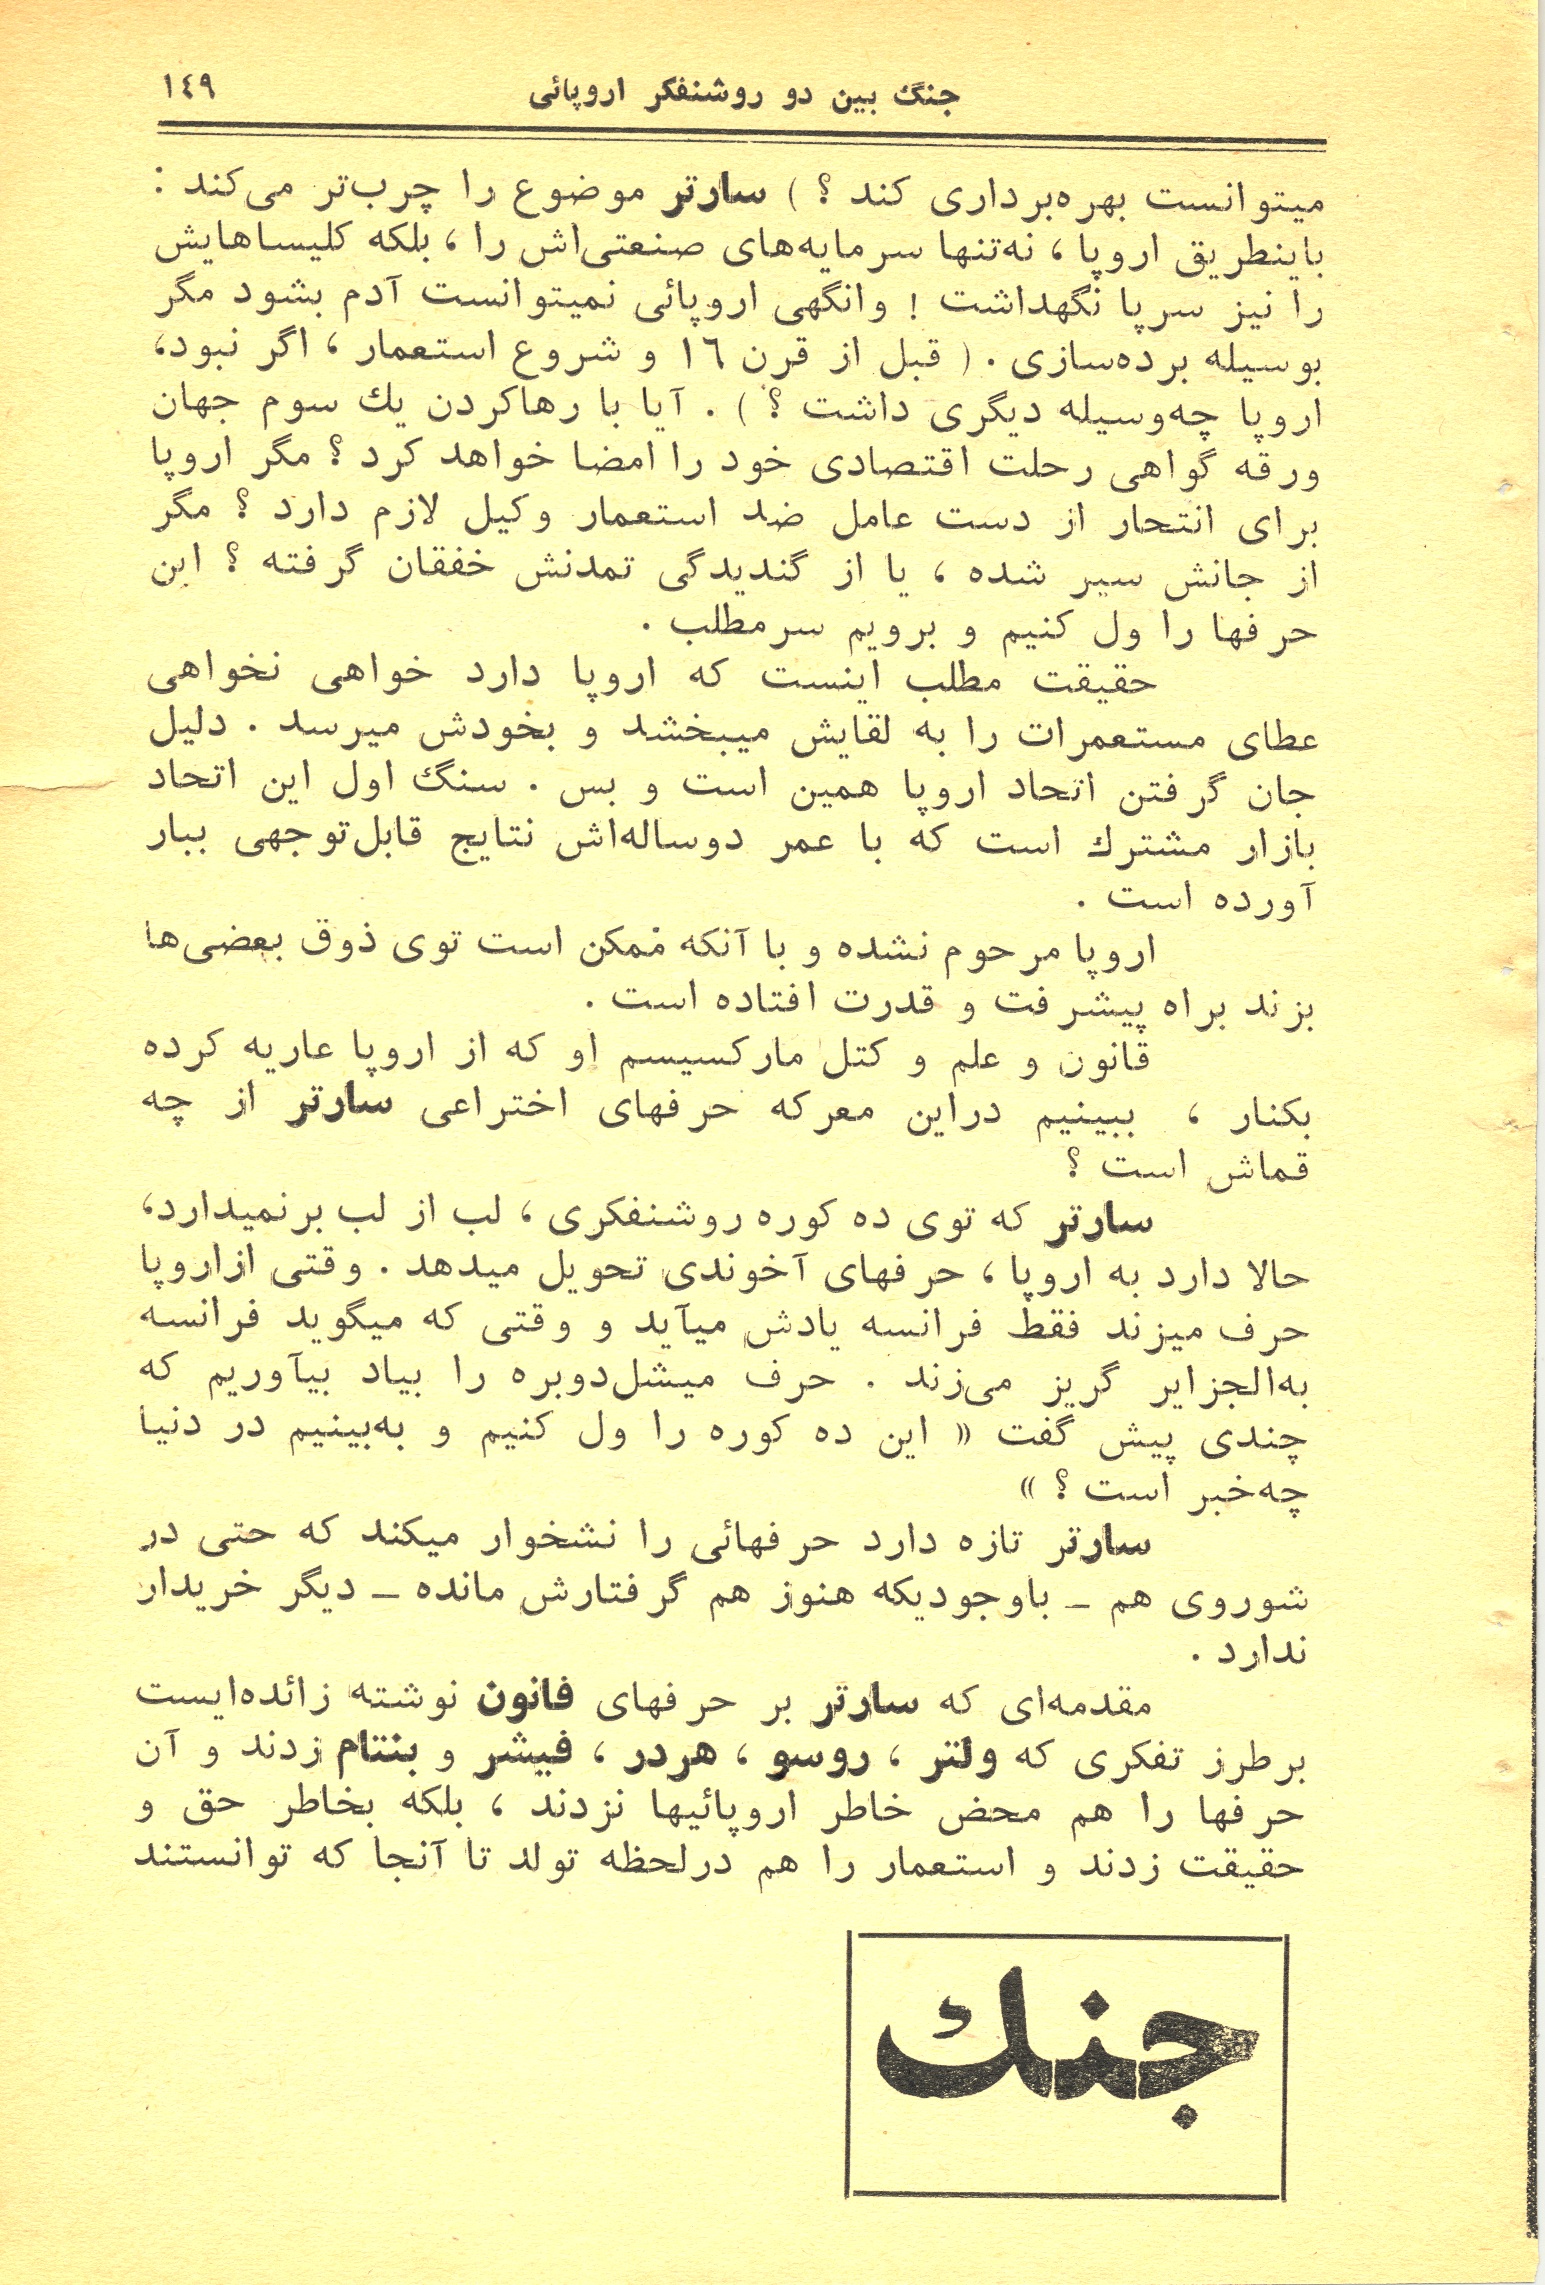 جنگ بین دو روشنفکر اروپائی ۱٤۹
میتوانست بهره‌برداری کند ؟ ) سارتر موضوع را چرب‌تر می‌کند :
باینطریق اروپا ، نه‌تنها سرمایه‌های صنعتی‌اش را ، بلکه کلیساهایش
را نیز سرپا نگهداشت ! وانگهی اروپائی نمیتوانست آدم بشود مگر
بوسیله برده‌سازی . ( قبل از قرن ۱٦ و شروع استعمار ، اگر نبود،
اروپا چه‌وسیله دیگری داشت ؟ ) . آیا با رهاکردن یك سوم جهان
ورقه گواهی رحلت اقتصادی خود را امضا خواهد کرد ؟ مگر اروپا
برای انتحار از دست عامل ضد استعمار وکیل لازم دارد ؟ مگر
از جانش سیر شده ، یا از گندیدگی تمدنش خفقان گرفته ؟ این
حرفها را ول کنیم و برویم سرمطلب .
حقیقت مطلب اینست که اروپا دارد خواهی نخواهی
عطای مستعمرات را به لقایش میبخشد و بخودش میرسد . دلیل
جان گرفتن اتحاد اروپا همین است و بس . سنگ اول این اتحاد
بازار مشترك است که با عمر دوساله‌اش نتایج قابل‌توجهی ببار
آورده است .
اروپا مرحوم نشده و با آنکه ممکن است توی ذوق بعضی‌ها
بزند براه پیشرفت و قدرت افتاده است .
قانون و علم و کتل مارکسیسم او که از اروپا عاریه کرده
بکنار ، ببینیم دراین معرکه حرفهای اختراعی سارتر از چه
قماش است ؟
سارتر که توی ده کوره روشنفکری ، لب از لب برنمیدارد،
حالا دارد به اروپا ، حرفهای آخوندی تحویل میدهد . وقتی ازاروپا
حرف میزند فقط فرانسه یادش میآید و وقتی که میگوید فرانسه
به‌الجزایر گریز می‌زند . حرف میشل‌دوبره را بیاد بیآوریم که
چندی پیش گفت « این ده کوره را ول کنیم و به‌بینیم در دنیا
چه‌خبر است ؟ »
سارتر تازه دارد حرفهائی را نشخوار میکند که حتی در
شوروی هم ـ باوجودیکه هنوز هم گرفتارش مانده ـ دیگر خریدار
ندارد .
مقدمه‌ای که سارتر بر حرفهای فانون نوشته زائده‌ایست
برطرز تفکری که ولتر ، روسو ، هردر ، فیشر و بنتام زدند و آن
حرفها را هم محض خاطر اروپائیها نزدند ، بلکه بخاطر حق و
حقیقت زدند و استعمار را هم درلحظه تولد تا آنجا که توانستند
جنك